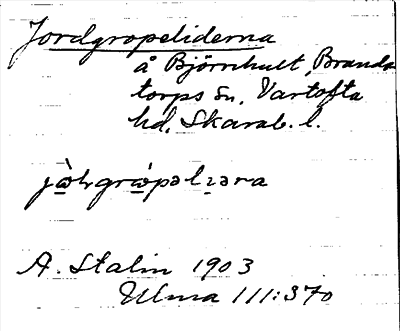 Jordgropeliderna
å Björnhult, Branda
torps sn, Vartofta
hd, Skarab. l.
A. Stalin 1903
Ulma 111:370